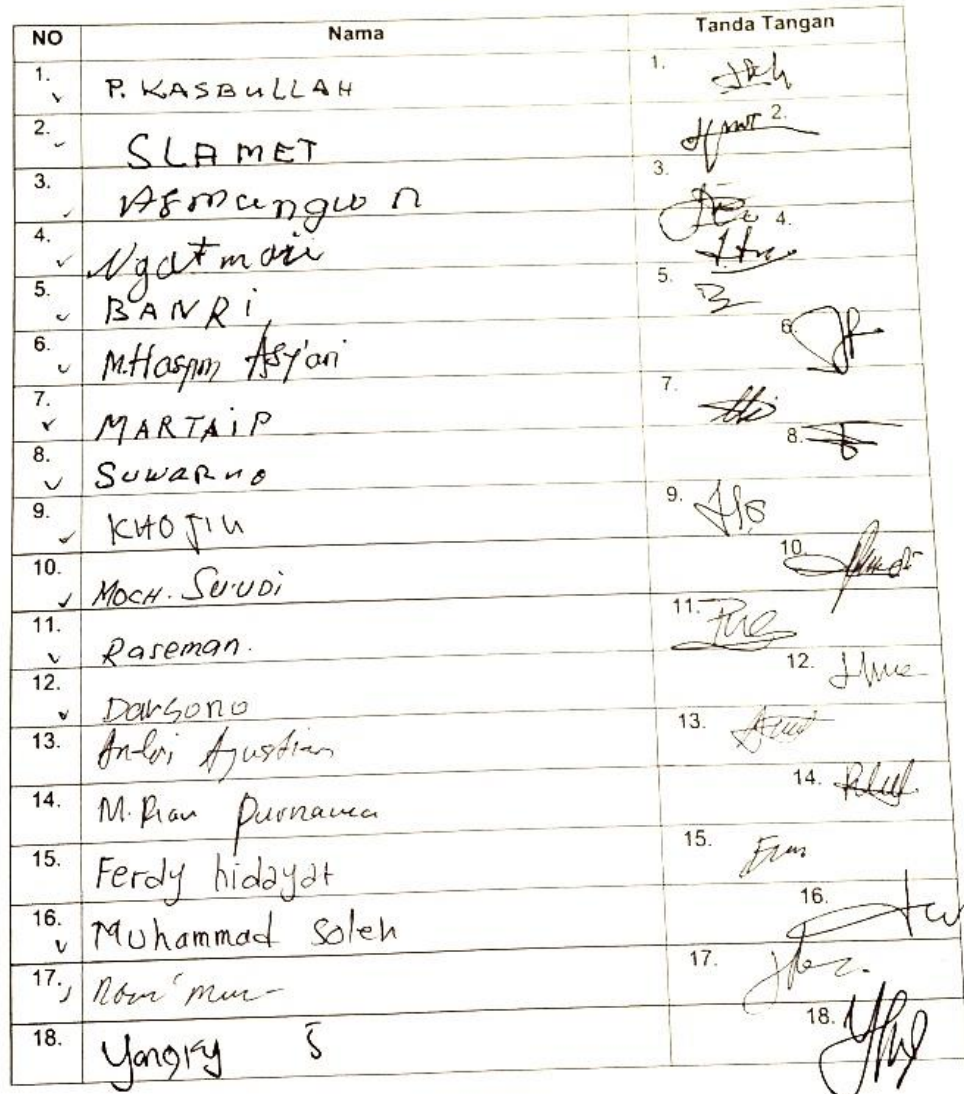 NO Nama Tanda Tangan
1. P. KASBULLAH 1.
2. SLAMET 2.
3. Asmungwon 3.
4. Ngatmari 4.
5. BANRI 5.
6. M.Hasyim Asy'ari 6.
7. MARTAIP 7.
8. SUWARNO 8.
9. KHOJIN 9.
10. MOCH. SU'UDI 10.
11. Raseman. 11.
12. Darsono 12.
13. Andri Agustian 13.
14. M. Rian Purnama 14.
15. Ferdy hidayat 15.
16. Muhammad Soleh 16.
17. 17.
18. Yongky S 18.